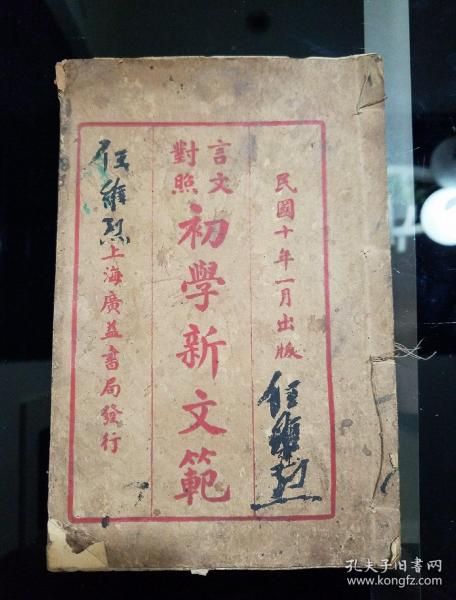 民國十年一月出版
言文
對照
初學新文範
上海廣益書局發行
任維烈
任維烈
孔夫子旧书网
www.kongfz.com